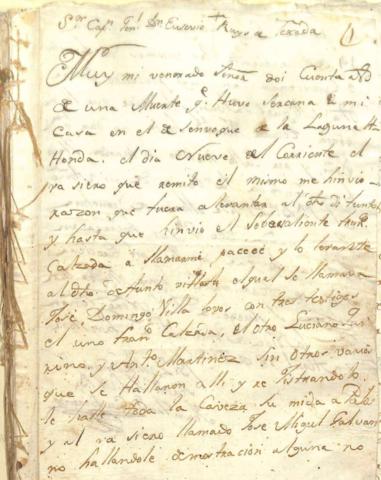 Sor Capn Genl Dn Eusevio Ruyz de Texada
Muy mi venerado Señor doi Cuenta a VS
de una Muerte q. Huvo sercana de mi
Casa en el desenvoque de la Laguna
Honda. el dia Nueve del Corriente el
ra siero que remito el mismo me hinvio
razon, que fuera a levantar al dho difunto
y hasta que hinvio el Sobresaliente
Calzada a llamarme pacee y lo levante
al dho difunto el qual se llamava
José Domingo Villa lovos con tres testigos
el uno Frano Calzada, el otro Luciano
y Anto Martinez sin otros varios
que se Hallaron alli y rejistrandolo
le halle toda la Caveza sumida a Palos
y al ra siero llamado Jose Migl Galvan
no hallandole demostracion alguna no